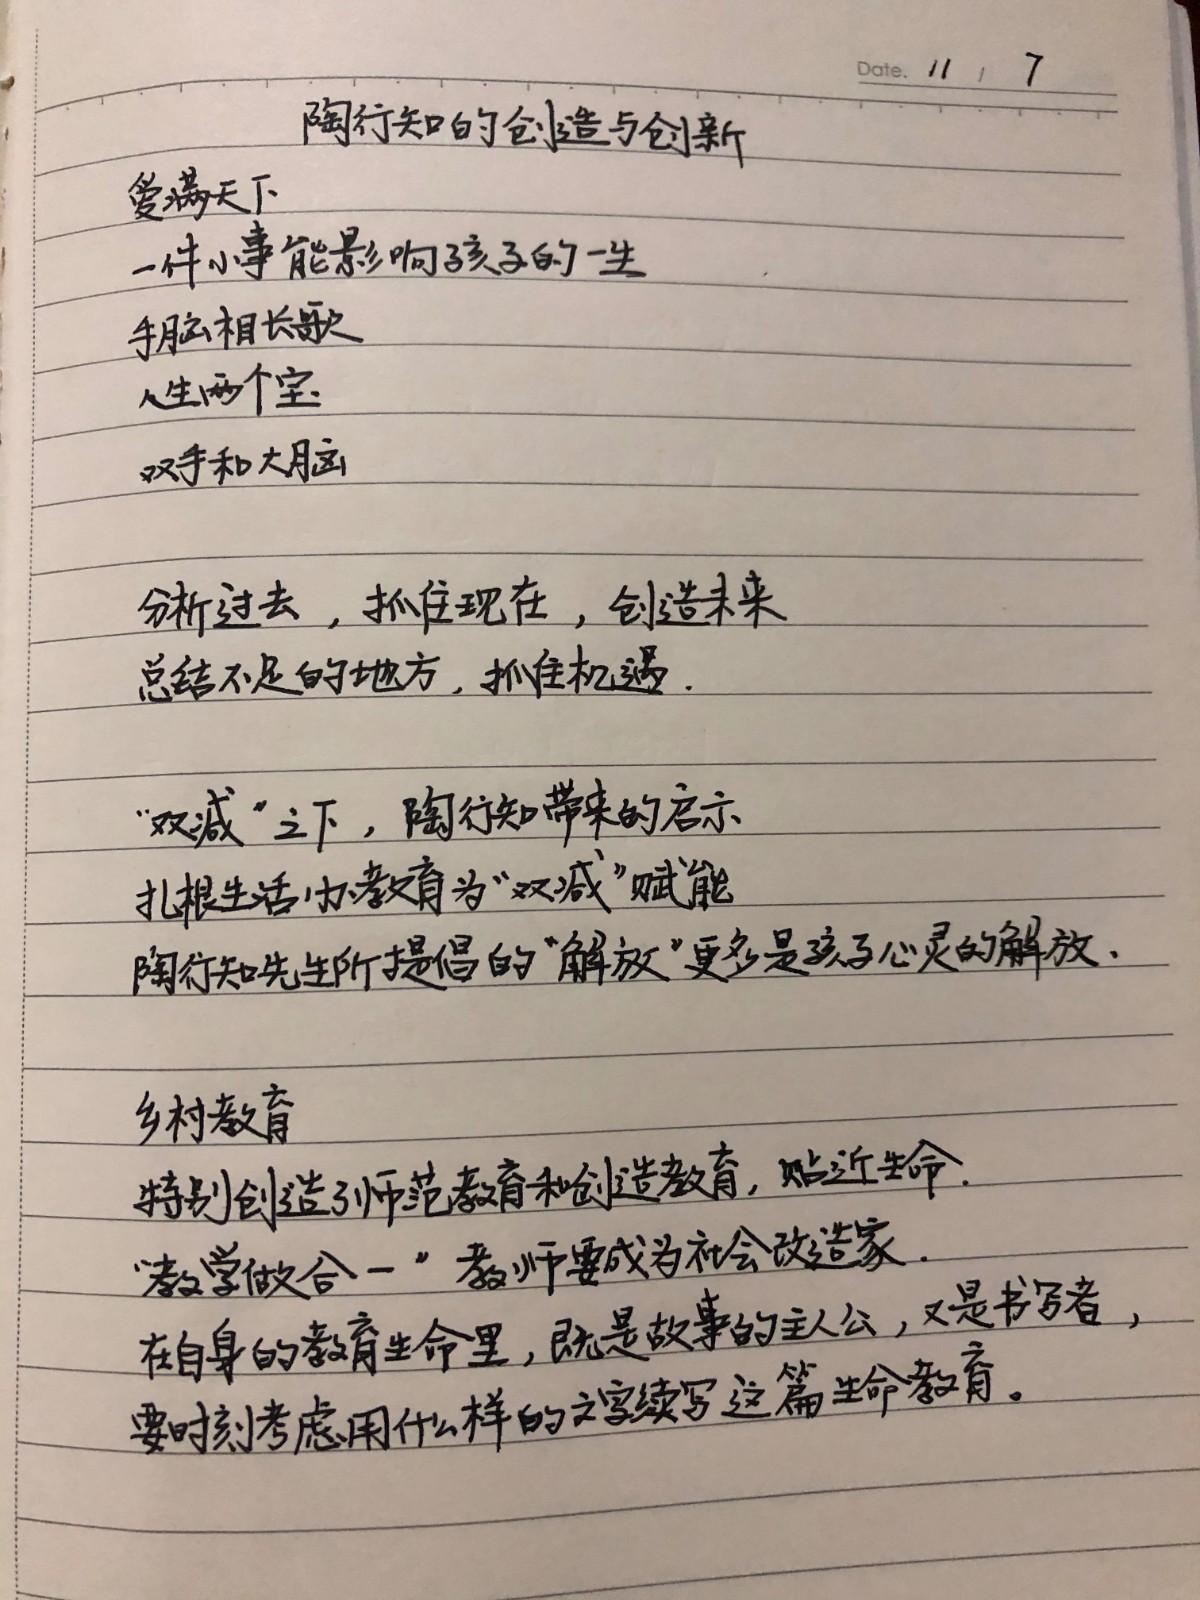 Date. 11 / 7
陶行知的创造与创新
爱满天下
一件小事能影响孩子的一生
手脑相长歌
人生两个宝
双手和大脑
分析过去，抓住现在，创造未来
总结不足的地方，抓住机遇.
“双减”之下，陶行知带来的启示
扎根生活办教育为“双减”赋能
陶行知先生所提倡的“解放”更多是孩子心灵的解放.
乡村教育
特别创造了师范教育和创造教育，贴近生命.
“教学做合一”教师要成为社会改造家.
在自身的教育生命里，既是故事的主人公，又是书写者，
要时刻考虑用什么样的文字续写这篇生命教育。